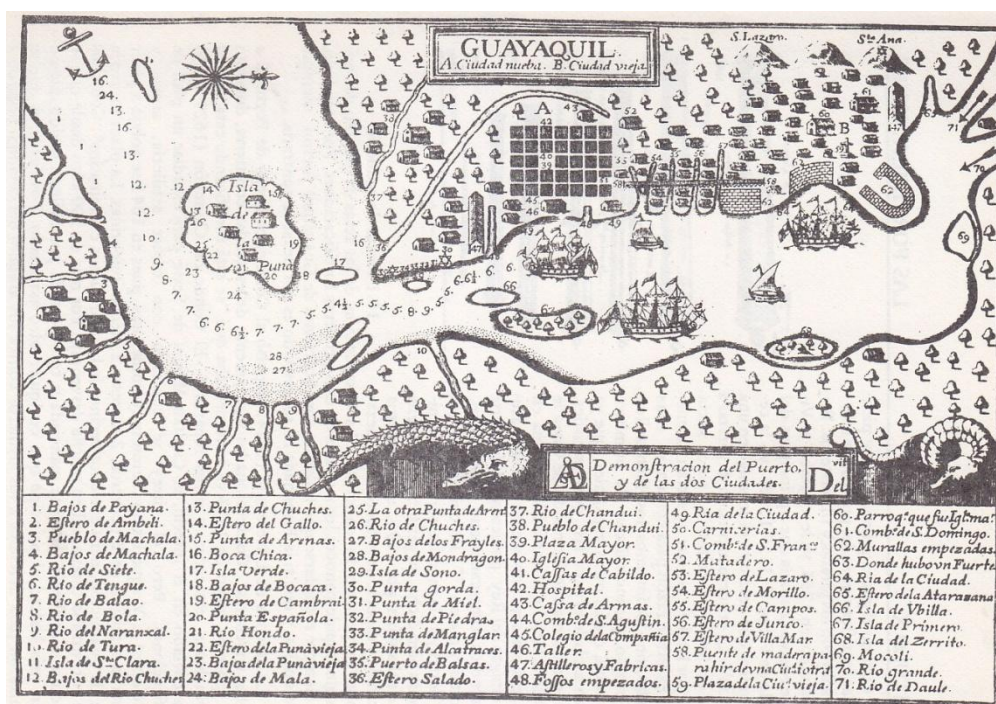 GUAYAQUIL.
A. Ciudad nueba. B. Ciudad vieja.
S. Lazaro.
Sta. Ana.
A
B
Isla
de
la
Punà
Demonstracion del Puerto,
y de las dos Ciudades.
Delvit
1. Bajos de Payana.
2. Estero de Ambeli.
3. Pueblo de Machala.
4. Bajos de Machala.
5. Rio de Siete.
6. Rio de Tengue.
7. Rio de Balao.
8. Rio de Bola.
9. Rio del Naranxal.
10. Rio de Tura.
11. Isla de Sta. Clara.
12. Bajos del Rio Chuches
13. Punta de Chuches.
14. Estero del Gallo.
15. Punta de Arenas.
16. Boca Chica.
17. Isla Verde.
18. Bajos de Bocaca.
19. Estero de Cambrai
20. Punta Española.
21. Rio Hondo.
22. Estero de la Punà vieja
23. Bajos de la Punà vieja
24. Bajos de Mala.
25. La otra Punta de Aren
26. Rio de Chuches.
27. Bajos de los Frayles.
28. Bajos de Mondragon.
29. Isla de Sono.
30. Punta gorda.
31. Punta de Miel.
32. Punta de Piedra.
33. Punta de Manglar.
34. Punta de Alcatraces.
35. Puerto de Balsas.
36. Estero Salado.
37. Rio de Chandui.
38. Pueblo de Chandui.
39. Plaza Mayor.
40. Iglesia Mayor.
41. Cassas de Cabildo.
42. Hospital.
43. Cassa de Armas.
44. Combto. de S. Agustin.
45. Colegio de la Compañia
46. Taller.
47. Astilleros y Fabricas.
48. Fossos empezados.
49. Ria de la Ciudad.
50. Carnicerias.
51. Combto. de S. Franco.
52. Matadero.
53. Estero de Lazaro.
54. Estero de Morillo.
55. Estero de Campos.
56. Estero de Junco.
57. Estero de Villa Mar.
58. Puente de madera pa
ra hir de vna Ciud. à otra
59. Plaza de la Ciud. vieja.
60. Parroqa. que fue Igla. mar.
61. Combto. de S. Domingo.
62. Murallas empezadas.
63. Donde hubo vn Fuerte
64. Ria de la Ciudad.
65. Estero de la Atarazana
66. Isla de Vbilla.
67. Isla de Primero.
68. Isla del Zerrito.
69. Mocoli.
70. Rio grande.
71. Rio de Daule.